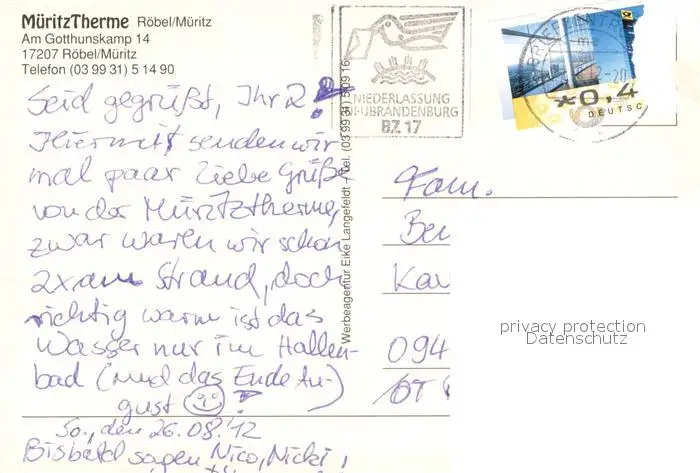 MüritzTherme Röbel/Müritz
Am Gotthunskamp 14
17207 Röbel/Müritz
Telefon (03 99 31) 5 14 90
Seid gegrüßt, Ihr 2!
Hiermit senden wir
mal paar liebe Grüße
von der Müritztherme,
zwar waren wir schon
2x am Strand, doch
richtig warm ist das
Wasser nur im Hallen-
bad (und das Ende Au-
gust ☺)!
So., den 26.08.12
Bis bald sagen Nico, Nicki,
Werbeagentur Eike Langefeldt - Tel. (03 99 31) 5 09 16
NIEDERLASSUNG
NEUBRANDENBURG
BZ 17
BRIEFZENTR
*0,4
DEUTSC
Fam.
Ber
Kar
094
OT
privacy protection
Datenschutz